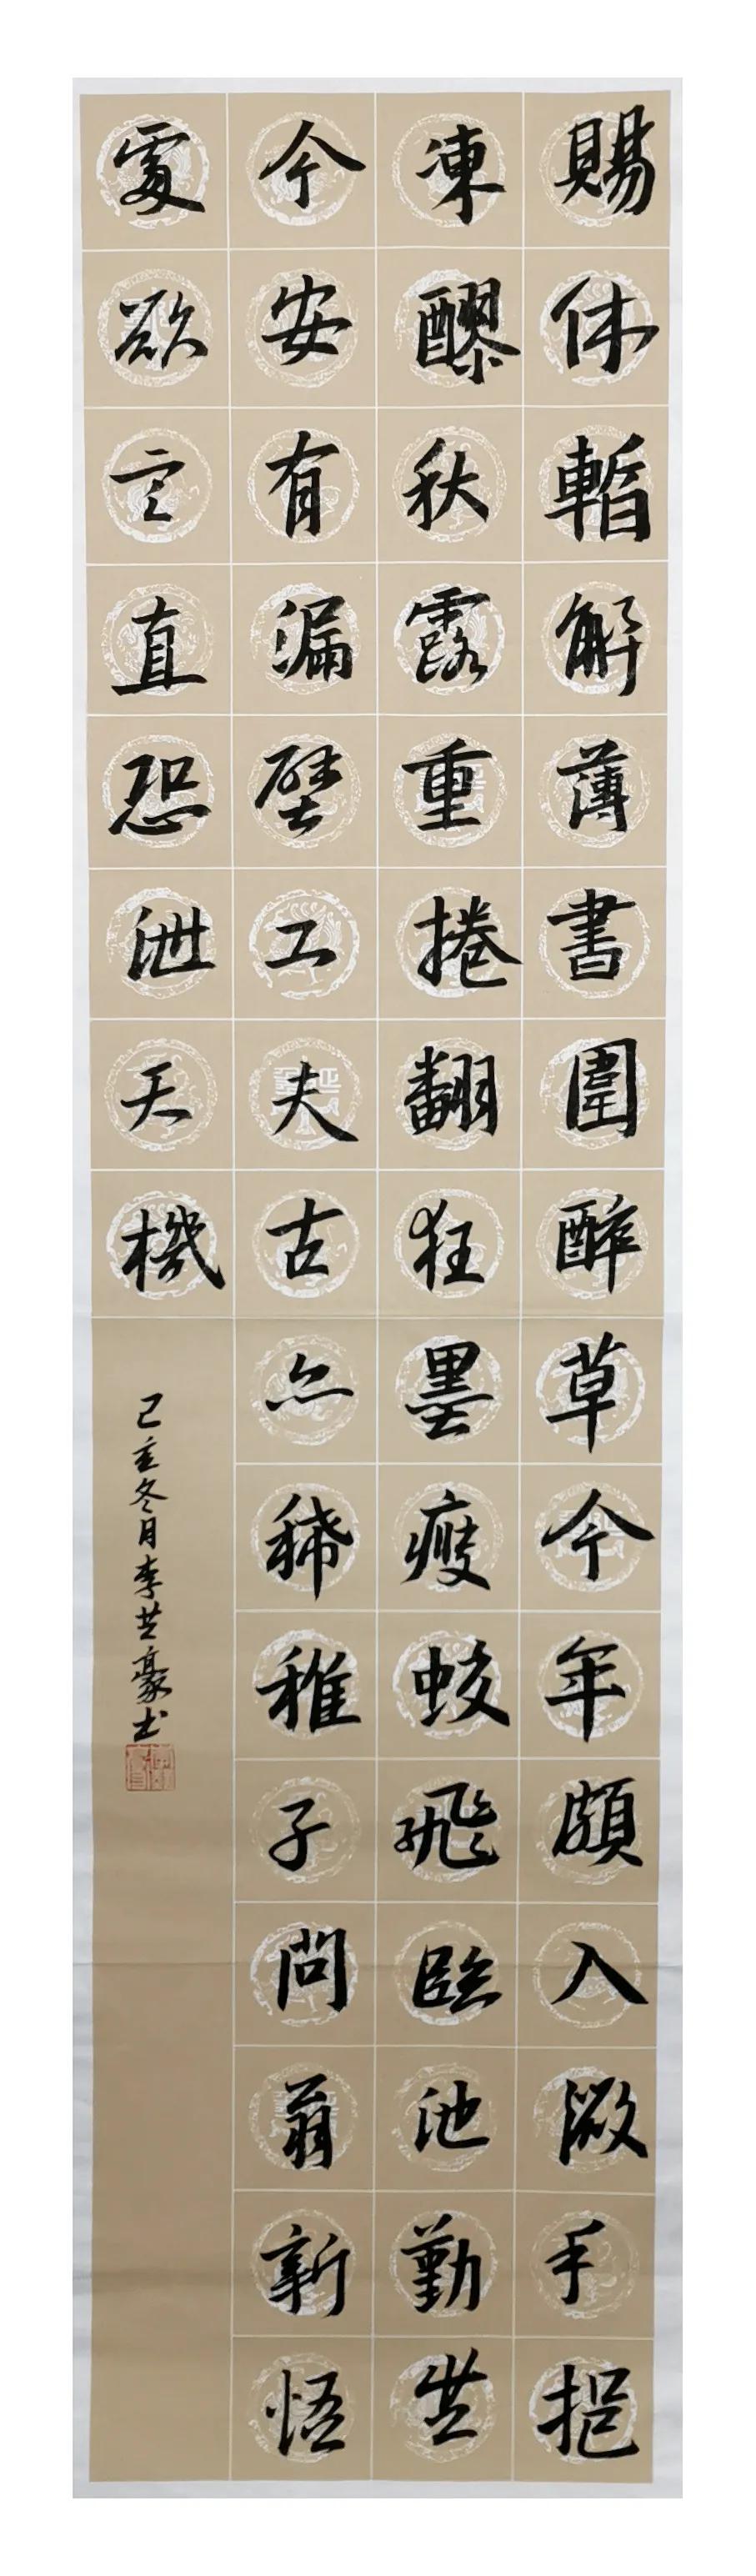 賜休暫解薄書圍醉草今年頗入微手挹
凍醪秋露重捲翻狂墨瘦蛟飛臨池勤苦
今安有漏壁工夫古亦稀稚子問翁新悟
處欲言直恐泄天機
己亥冬月李世豪书